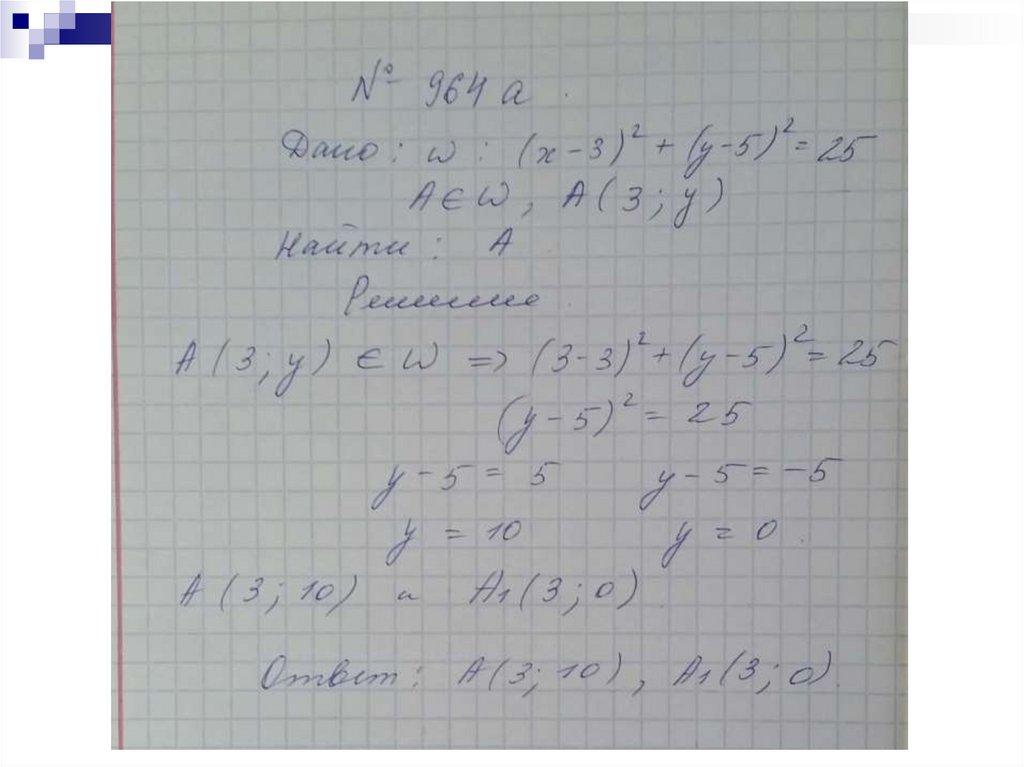 № 964 а.
Дано: w: (x-3)² + (y-5)² = 25
A ∈ w, A(3; y)
Найти: A
Решение.
A(3; y) ∈ w => (3-3)² + (y-5)² = 25
(y-5)² = 25
y-5 = 5 y-5 = -5
y = 10 y = 0.
A(3; 10) и A₁(3; 0)
Ответ: A(3; 10), A₁(3; 0).